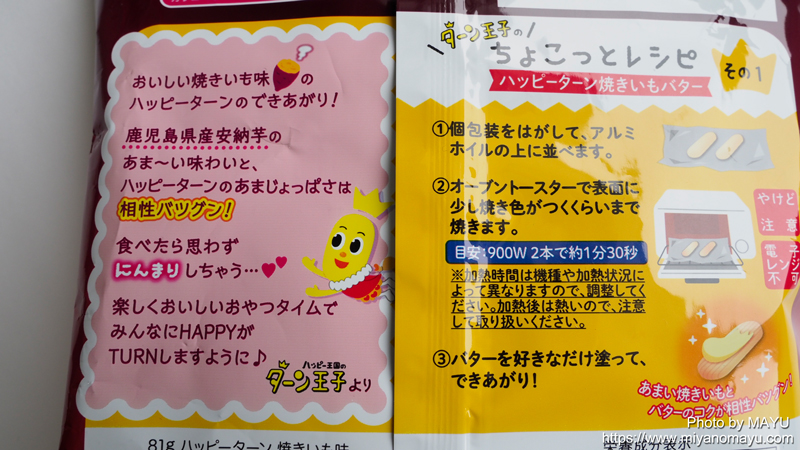 おいしい焼きいも味の
ハッピーターンのできあがり！
鹿児島県産安納芋の
あま〜い味わいと、
ハッピーターンのあまじょっぱさは
相性バツグン！
食べたら思わず
にんまりしちゃう…
楽しくおいしいおやつタイムで
みんなにHAPPYが
TURNしますように♪
ハッピー王国の
ターン王子より
81g ハッピーターン 焼きいも味
ターン王子の
ちょこっとレシピ
その1
ハッピーターン焼きいもバター
①個包装をはがして、アルミ
ホイルの上に並べます。
②オーブントースターで表面に
少し焼き色がつくくらいまで
焼きます。
目安：900W 2本で約1分30秒
※加熱時間は機種や加熱状況に
よって異なりますので、調整してく
ださい。加熱後は熱いので、注意
して取り扱いください。
やけど
注意
電子
レンジ
不可
③バターを好きなだけ塗って、
できあがり！
あまい焼きいもと
バターのコクが相性バツグン！
栄養成分表示
Photo by MAYU
https://www.miyanomayu.com